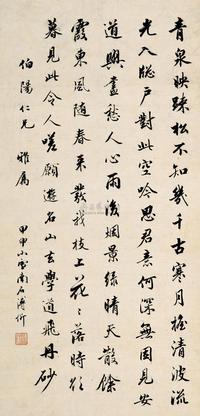 青泉映疎松不知幾千古寒月搖清波流
光入牕戶對此空吟思君意何深無因見安
道興盡愁人心雨後烟景綠晴天散餘
霞東風隨春來發我枝上花〻落時欲
暮見此令人嗟願遊名山去學道飛丹砂
伯陽仁兄 雅屬
甲申小雪南石溥伒